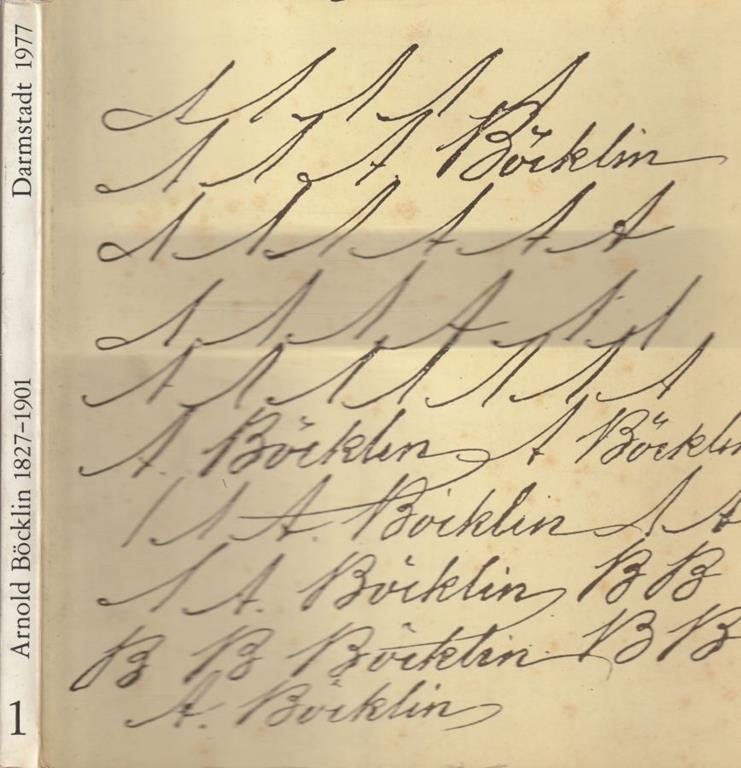 Arnold Böcklin 1827–1901 Darmstadt 1977
1
A A A A A
A A A. Böcklin
A A A A A A
A A A A A A
A A A A A A A
A. Böcklin A Böcklin
A A A. Böcklin A A
A A. Böcklin B B
B B Böcklin B B
A. Böcklin